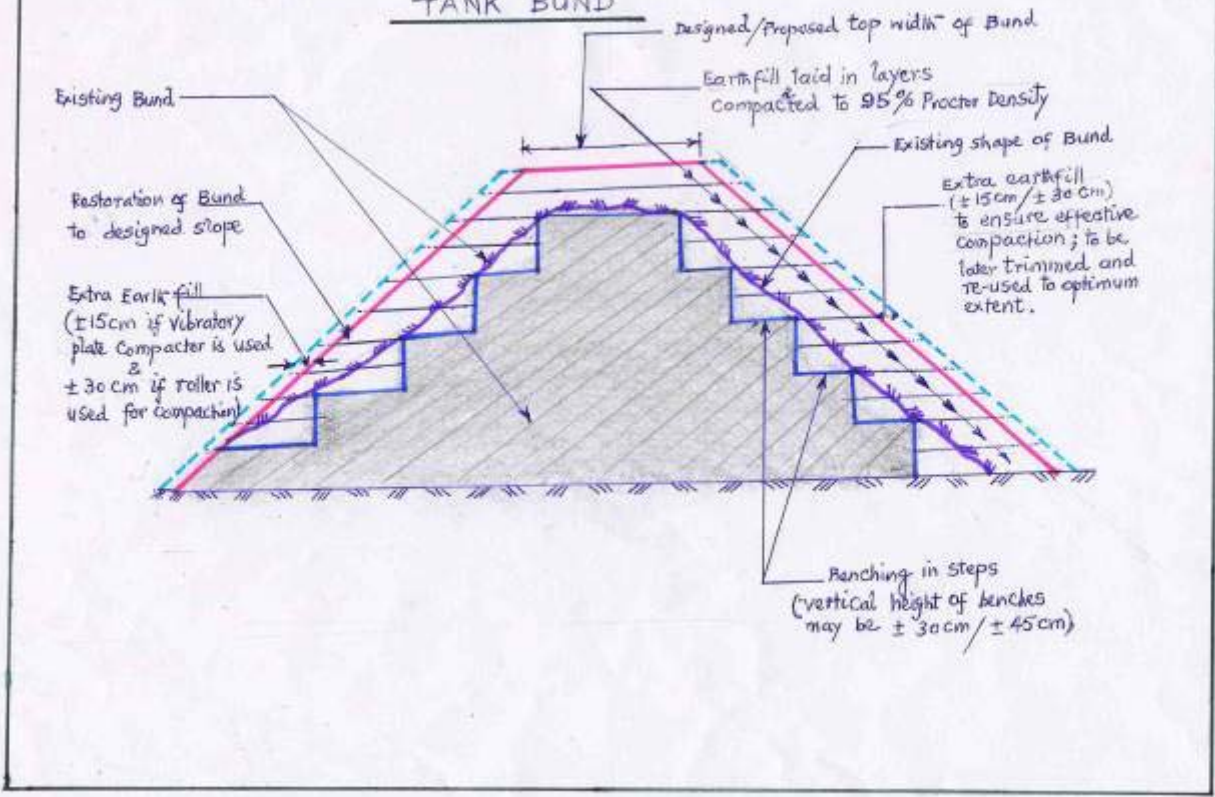 TANK BUND
Designed/Proposed top width of Bund
Existing Bund
Earthfill laid in layers
& compacted to 95% Proctor Density
Existing shape of Bund
Restoration of Bund
to designed slope
Extra earthfill
(±15cm/±30cm)
to ensure effective
compaction; to be
later trimmed and
re-used to optimum
extent.
Extra Earth fill
(±15cm if vibratory
plate compacter is used
&
±30cm if roller is
used for compaction)
Benching in steps
(vertical height of benches
may be ±30cm/±45cm)